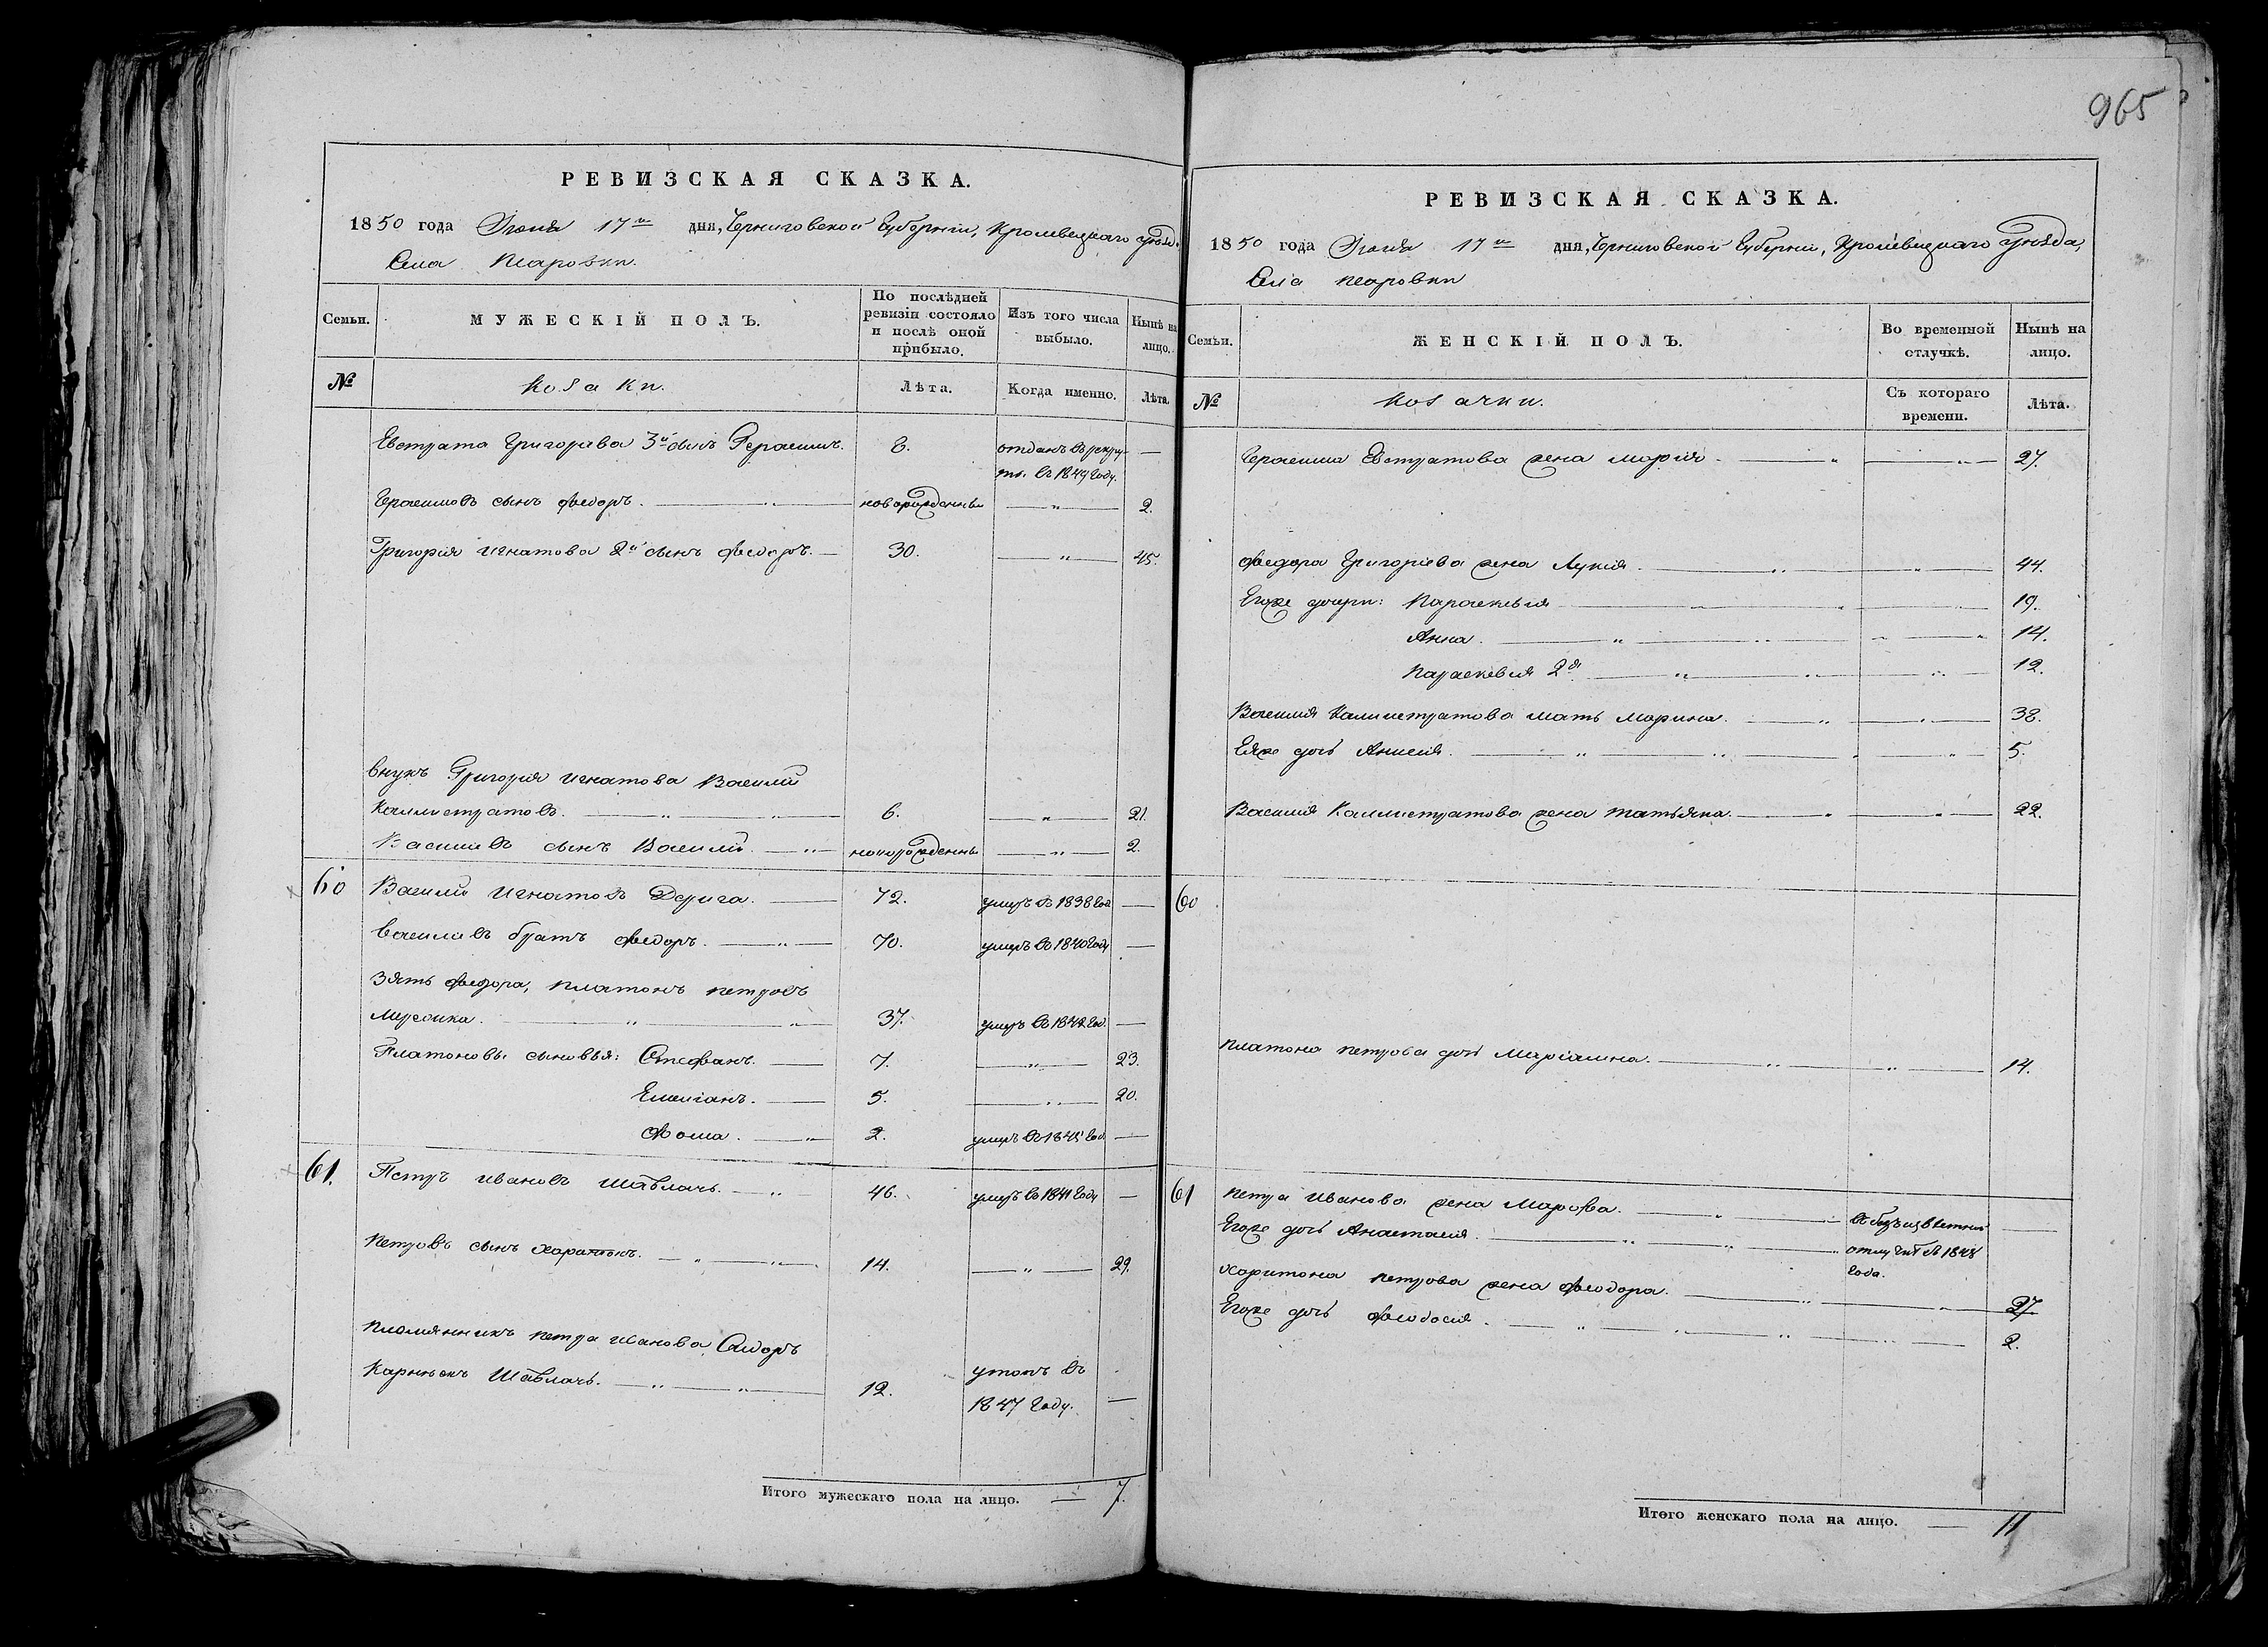 965
РЕВИЗСКАЯ СКАЗКА.
1850 года Іюня 17го дня, Черниговской Губерніи, Кролевецкаго уѣзд.
Села
Семьи. МУЖЕСКІЙ ПОЛЪ. По послѣдней ревизіи состояло и послѣ оной прибыло. Изъ того числа выбыло. Нынѣ на лицо.
№ Козаки. Лѣта. Когда именно. Лѣта.
Евстрата Григорьева 3й сынъ Герасимъ. 8. отданъ въ рекру- —
ты въ 1849 году.
Герасимовъ сынъ Федоръ. — новорожденный — 2.
Григорія Игнатова 2й сынъ Федоръ. — 30. — 45.
внукъ Григорія Игнатова Василій
Каллистратовъ. — 6. — 21.
Васильевъ сынъ Василій. — новорожденный — 2.
60 Василій Игнатовъ Дерига. — 72. умеръ въ 1838 год —
Васильевъ братъ Федоръ. — 70. умеръ въ 1840 году —
Зять Федора, Платонъ Петровъ
37. умеръ въ 1842 год. —
Платоновы сыновья: Стефанъ. — 7. — 23.
Емеліанъ. — 5. — 20.
Фома. — 2. умеръ въ 1845 год —
61. Петръ Ивановъ Шаблачъ. — 46. умеръ въ 1841 году —
Петровъ сынъ Харитонъ. — 14. — 29.
племянникъ Петра Иванова, Сидоръ
Карнѣевъ Шаблачъ. — 12. утопъ въ
1847 году. —
Итого мужескаго пола на лицо. — 7.
РЕВИЗСКАЯ СКАЗКА.
1850 года Іюня 17го дня, Черниговской Губерніи, Кролевецкаго уѣзда,
Села
Семьи. ЖЕНСКІЙ ПОЛЪ. Во временной отлучкѣ. Нынѣ на лицо.
№ Козачки. Съ котораго времени. Лѣта.
Герасима Евстратова жена Марія — 27.
Федора Григоріева жена Лукія. — 44.
Егоже дочери: Параскевія — 19.
Анна. — 14.
Параскевія 2я — 12.
Василія Каллистратова мать Марина. — 38.
Еяже дочь — 5.
Василія Каллистратова жена Татьяна. — 22.
60
Платона Петрова дочь — 14.
61 Петра Иванова жена Марфа. — въ безъизвѣстной —
Егоже дочь Анастасія. — отлучкѣ съ 1848
года.
Харитона Петрова жена Феодора. — 27.
Егоже дочь Феодосія. — 2.
Итого женскаго пола на лицо. — 11